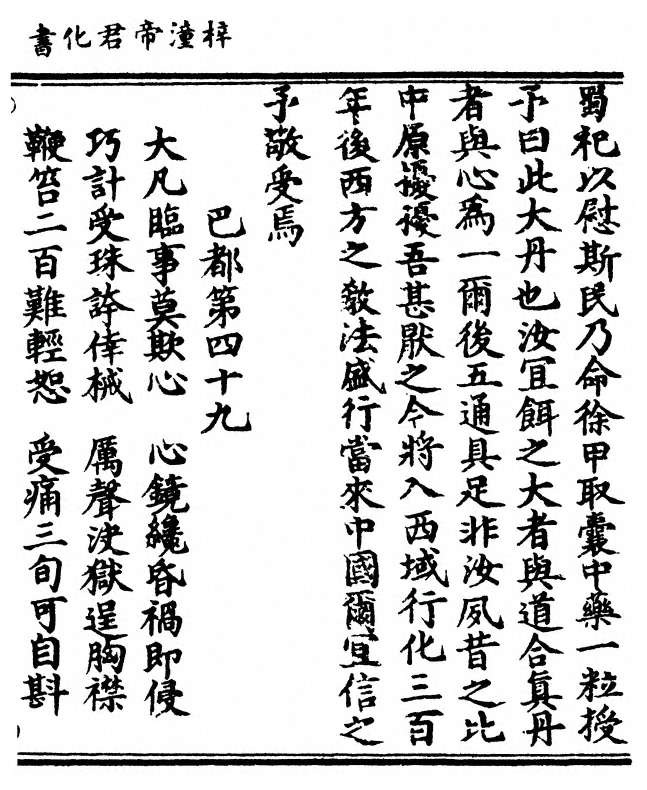 梓潼帝君化書
蜀祀以慰斯民乃命徐甲取囊中藥一粒授
予曰此大丹也汝宜餌之大者與道合真丹
者與心為一爾後五通具足非汝夙昔之比
中原擾擾吾甚厭之今將入西域行化三百
年後西方之教法盛行當來中國爾宜信之
予敬受焉
巴都第四十九
大凡臨事莫欺心 心鏡纔昏禍即侵
巧計受珠誇倖械 厲聲決獄逞胸襟
鞭笞二百難輕恕 受痛三旬可自斟